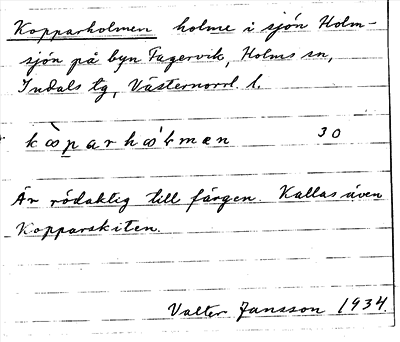 Kopparholmen holme i sjön Holm-
sjön på byn Fagervik, Holms sn,
Indals tg, Västernorrl. l.
kòparhólmæn 30
Är rödaktig till färgen. Kallas även
Kopparskiten.
Valter Jansson 1934.